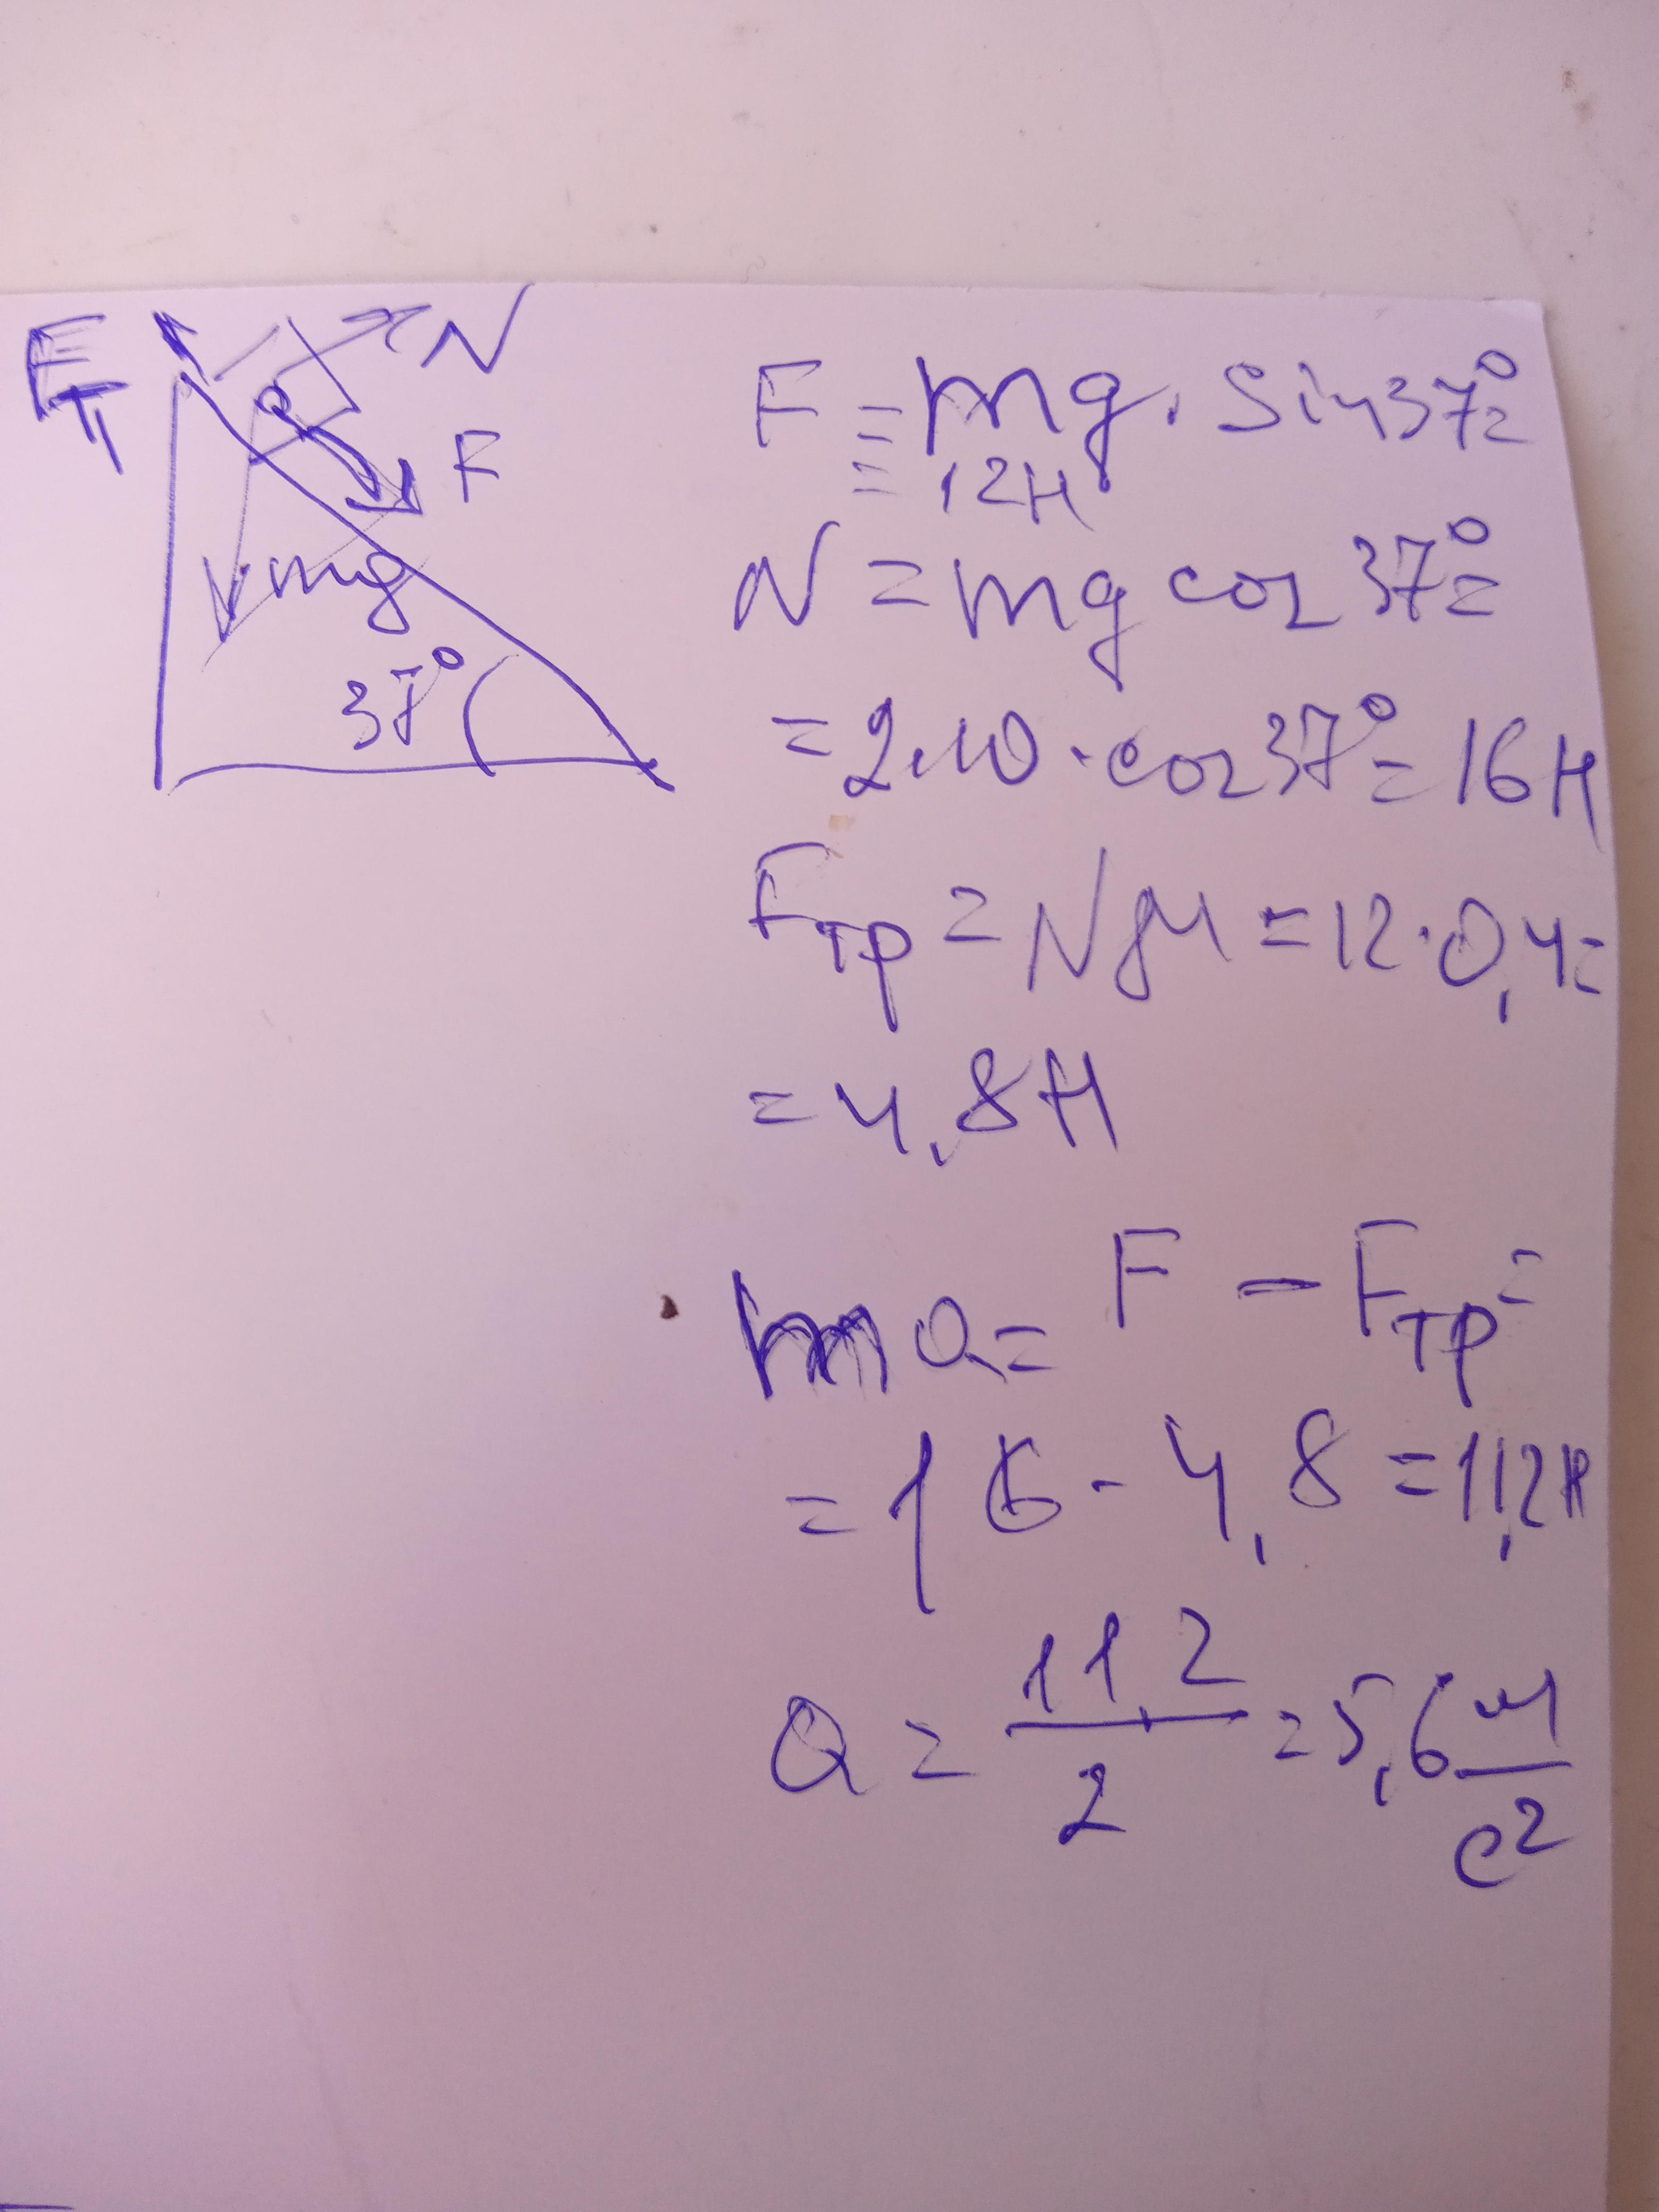 Fт
N
F
mg
37°
F = mg · sin 37° =
= 12Н
N = mg cos 37° =
= 2·10 · cos 37° = 16Н
Fтр = Nμ = 12·0,4 =
= 4,8Н
ma = F – Fтр =
= 16 - 4,8 = 11,2Н
a = 11,2/2 = 5,6 м/с²